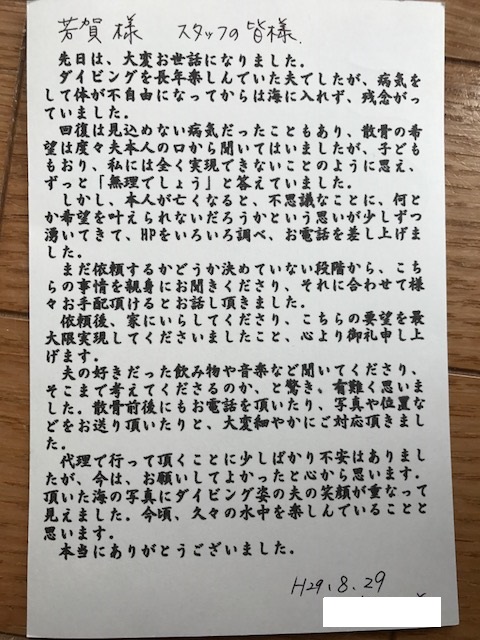 若賀様　スタッフの皆様.
先日は、大変お世話になりました.
ダイビングを長年楽しんでいた夫でしたが、病気を
して体が不自由になってからは海に入れず、残念がっ
ていました.
回復は見込めない病気だったこともあり、散骨の希
望は度々夫本人の口から聞いてはいましたが、子ども
もおり、私には全く実現できないことのように思え、
ずっと「無理でしょう」と答えていました.
しかし、本人が亡くなると、不思議なことに、何と
か希望を叶えられないだろうかという思いが少しずつ
湧いてきて、HPをいろいろ調べ、お電話を差し上げま
した.
まだ依頼するかどうか決めていない段階から、こち
らの事情を親身にお聞きくださり、それに合わせて様
々お手配頂けるとお話し頂きました.
依頼後、家にいらしてくださり、こちらの要望を最
大限実現してくださいましたこと、心より御礼申し上
げます.
夫の好きだった飲み物や音楽など聞いてくださり、
そこまで考えてくださるのか、と驚き、有難く思いま
した.散骨前後にもお電話を頂いたり、写真や位置な
どをお送り頂いたりと、大変細やかにご対応頂きまし
た.
代理で行って頂くことに少しばかり不安はありまし
たが、今は、お願いしてよかったと心から思います.
頂いた海の写真にダイビング姿の夫の笑顔が重なって
見えました.今頃、久々の水中を楽しんでいることと
思います.
本当にありがとうございました.
H29.8.29